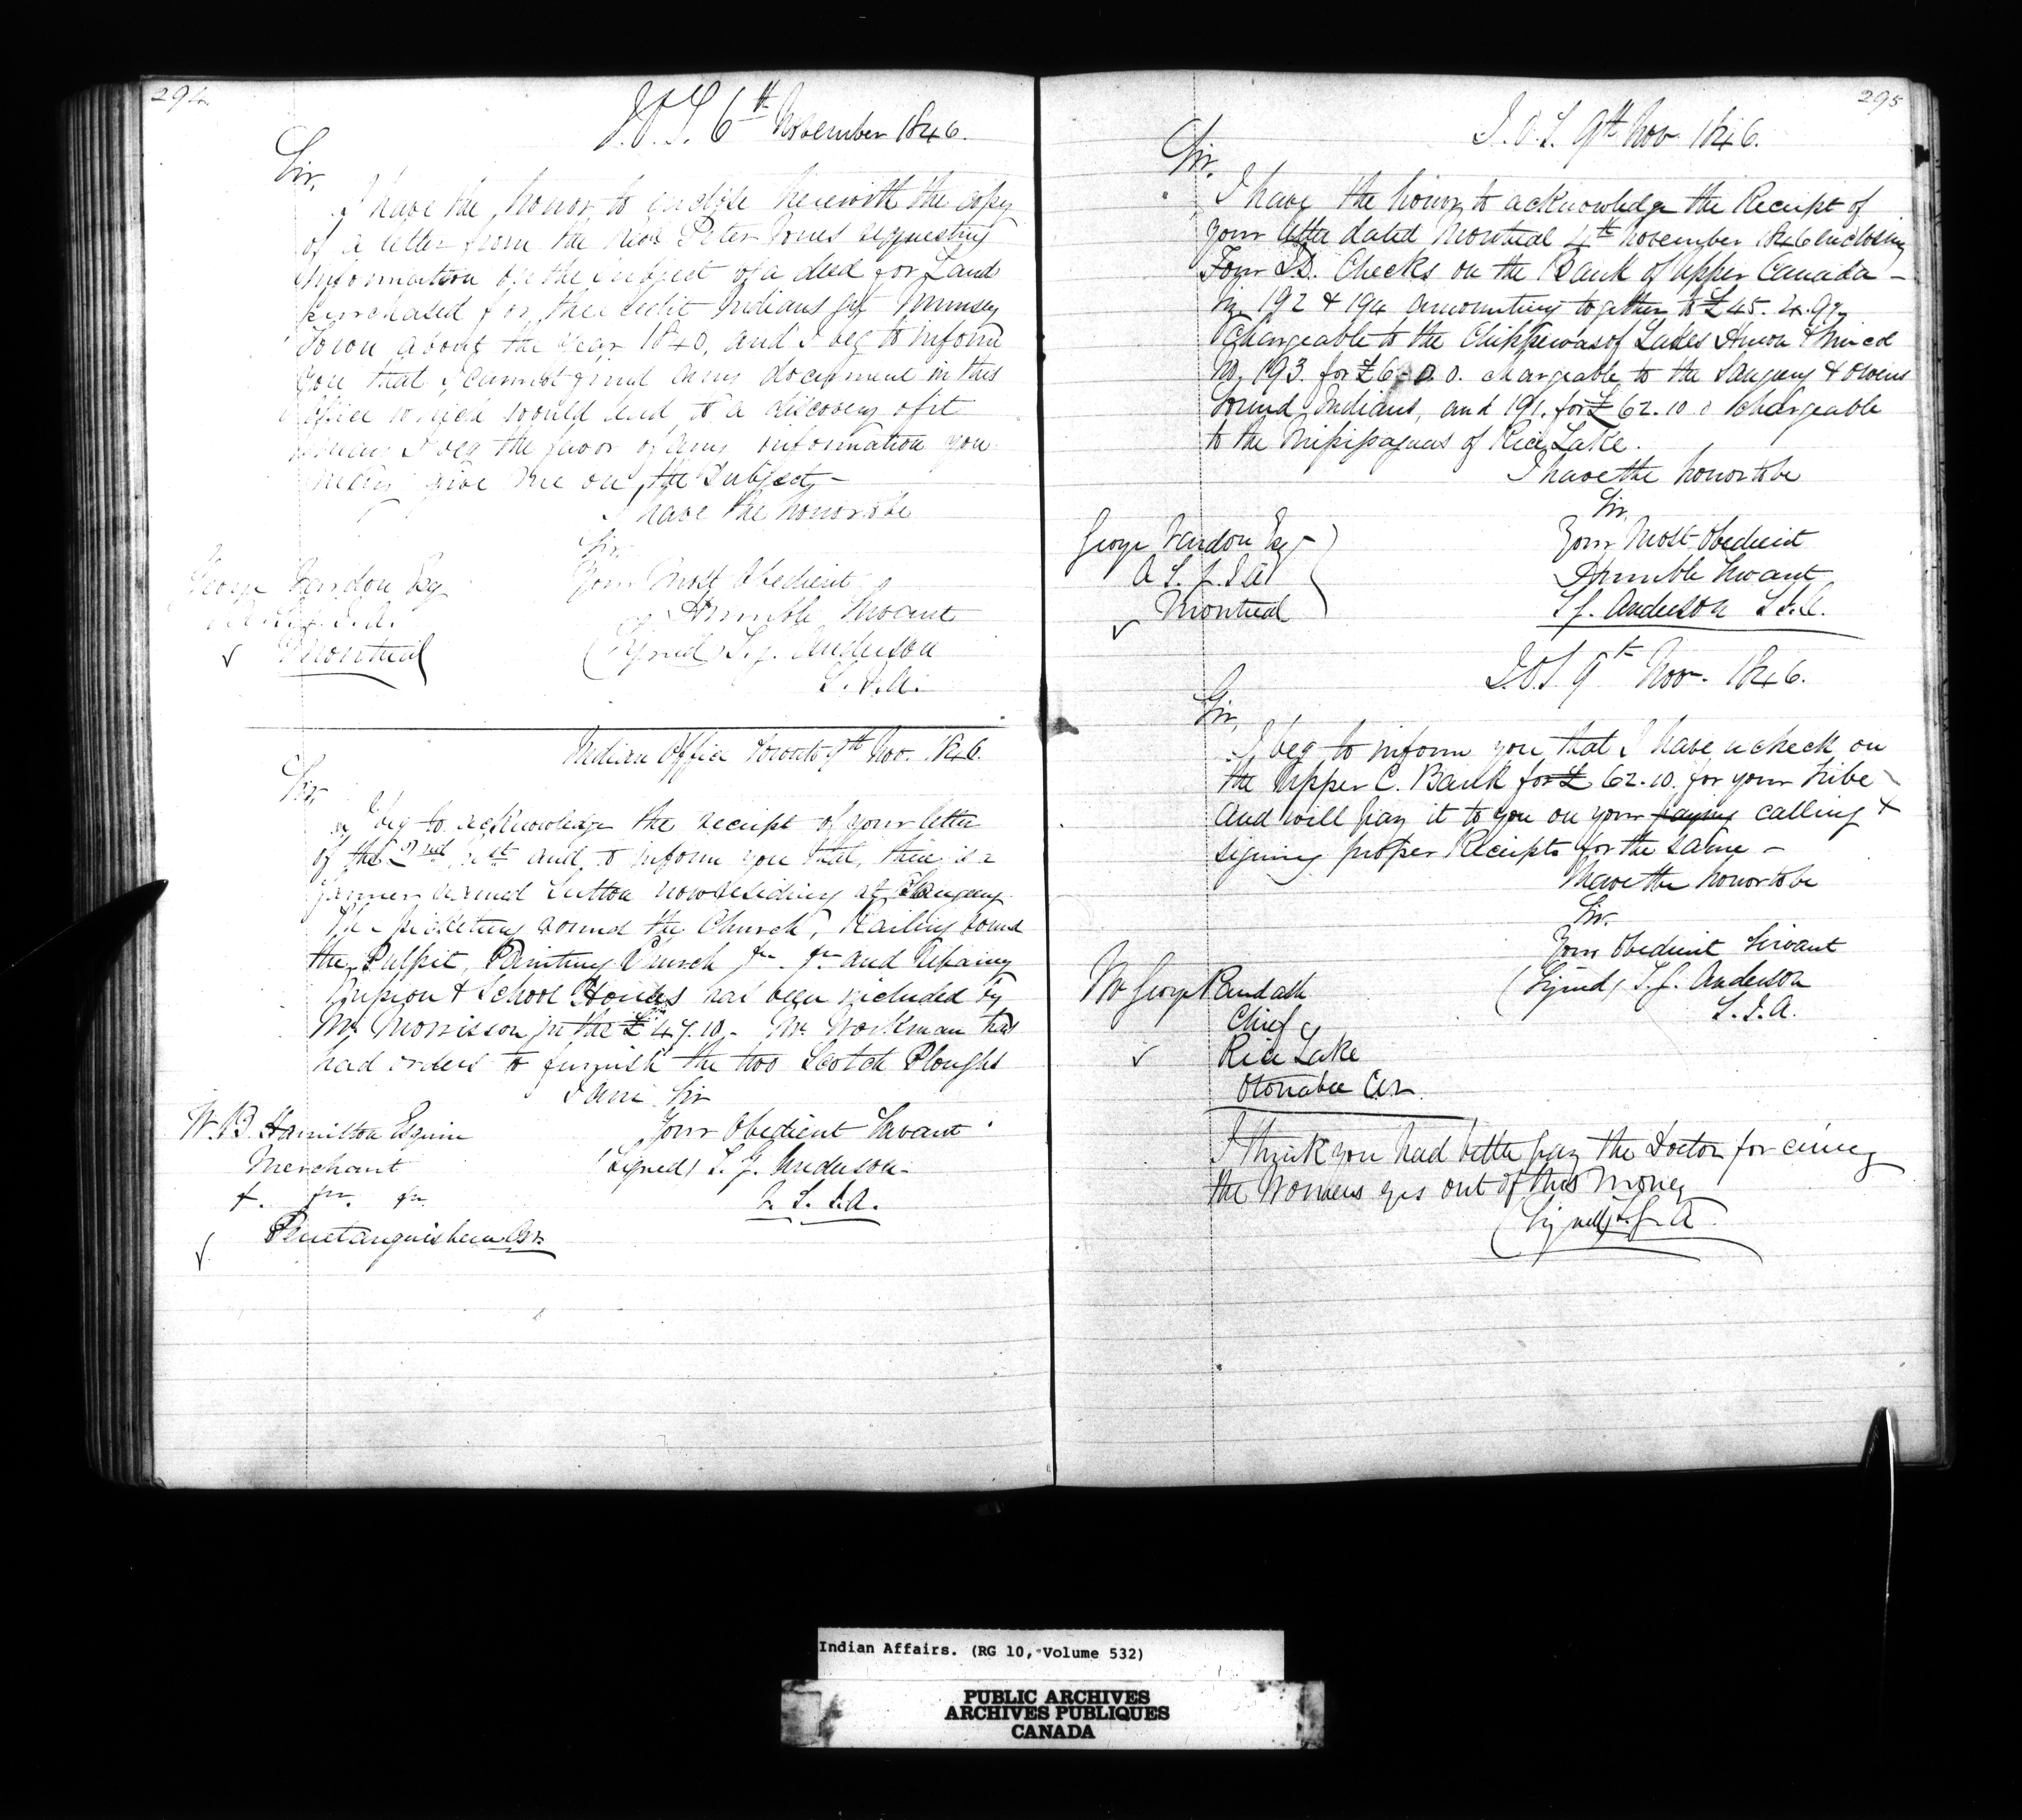 294
I.O.T. 6th November 1846.
Sir,
I have the honor to enclose herewith the copy
of a letter from the Revd Peter Jones requesting
information on the subject of a deed for Land
purchased for the Credit Indians at Munsey
Town about the year 1840, and I beg to inform
you that I cannot find any document in this
Office which would lead to a discovery of it
I beg the favor of any information you
may give me on the Subject —
I have the honor to be
Sir
Your Most Obedient
Humble Servant
(Signed) T. G. Anderson
S. I. A.
George Vardon Esq
A. S. I. A.
Montreal
Indian Office Toronto 9th Nov. 1846.
Sir,
I beg to acknowledge the receipt of your letter
of the 2nd and to inform you that, there is a
farmer named Sutton now residing at Saugeeng.
The picketing round the Church, Railing round
the Pulpit, Painting Church &c. &c. and Repairing
Mission & School Houses has been included by
Mr Morrison in the £47.10. Mr. Workman has
had orders to furnish the two Scotch Ploughs
I am Sir
Your Obedient Servant
(Signed) T. G. Anderson
S. I. A.
W. B. Hamilton Esquire
Merchant
&c. &c. &c.
Penetanguishene C.W.
295
I.O.T. 9th Nov 1846.
Sir.
I have the honor to acknowledge the Receipt of
your letter dated Montreal 4th November 1846 enclosing
Four I.D. Checks on the Bank of Upper Canada —
No. 192 & 194 amounting together to £45. 4. 9½
Chargeable to the Chippewas of Lakes Huron & Simcoe
No. 193. for £6. 0. 0. chargeable to the Saugeeng & Owens
Sound Indians, and 191. for £62.10.0 Chargeable
to the Missisaguas of Rice Lake.
I have the honor to be
Sir
Your Most Obedient
Humble Servant
T. G. Anderson S.I.A.
George Vardon Esq
A. S. I. A
Montreal
I.O.T. 9th Nov. 1846.
Sir,
I beg to inform you that I have a check on
the Upper C. Bank for £62.10. for your tribe
and will pay it to you on your paying calling &
signing proper Receipts for the same —
I have the honor to be
Sir.
Your Obedient Servant
(Signed) T. G. Anderson
S. I. A.
Mr George Paudash
Chief
Rice Lake
Otonabee C.W.
I think you had better pay the Doctor for curing
the Womens eyes out of this money
(Signed) T. G. A
Indian Affairs. (RG 10, Volume 532)
PUBLIC ARCHIVES
ARCHIVES PUBLIQUES
CANADA